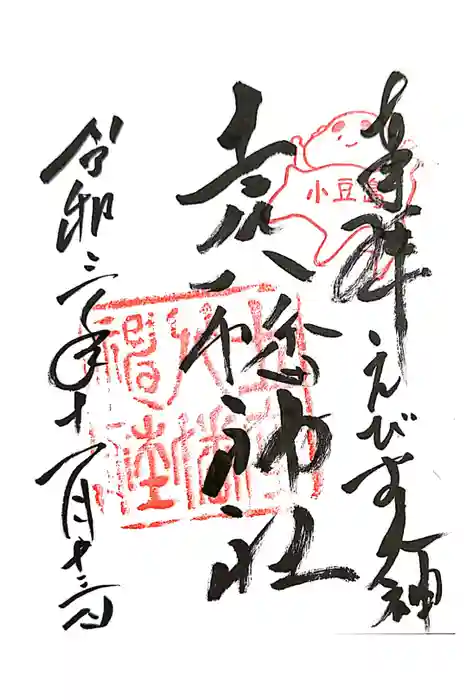 奉拝 えびす大神
小豆島
土庄八幡神社
令和三年十一月十三日